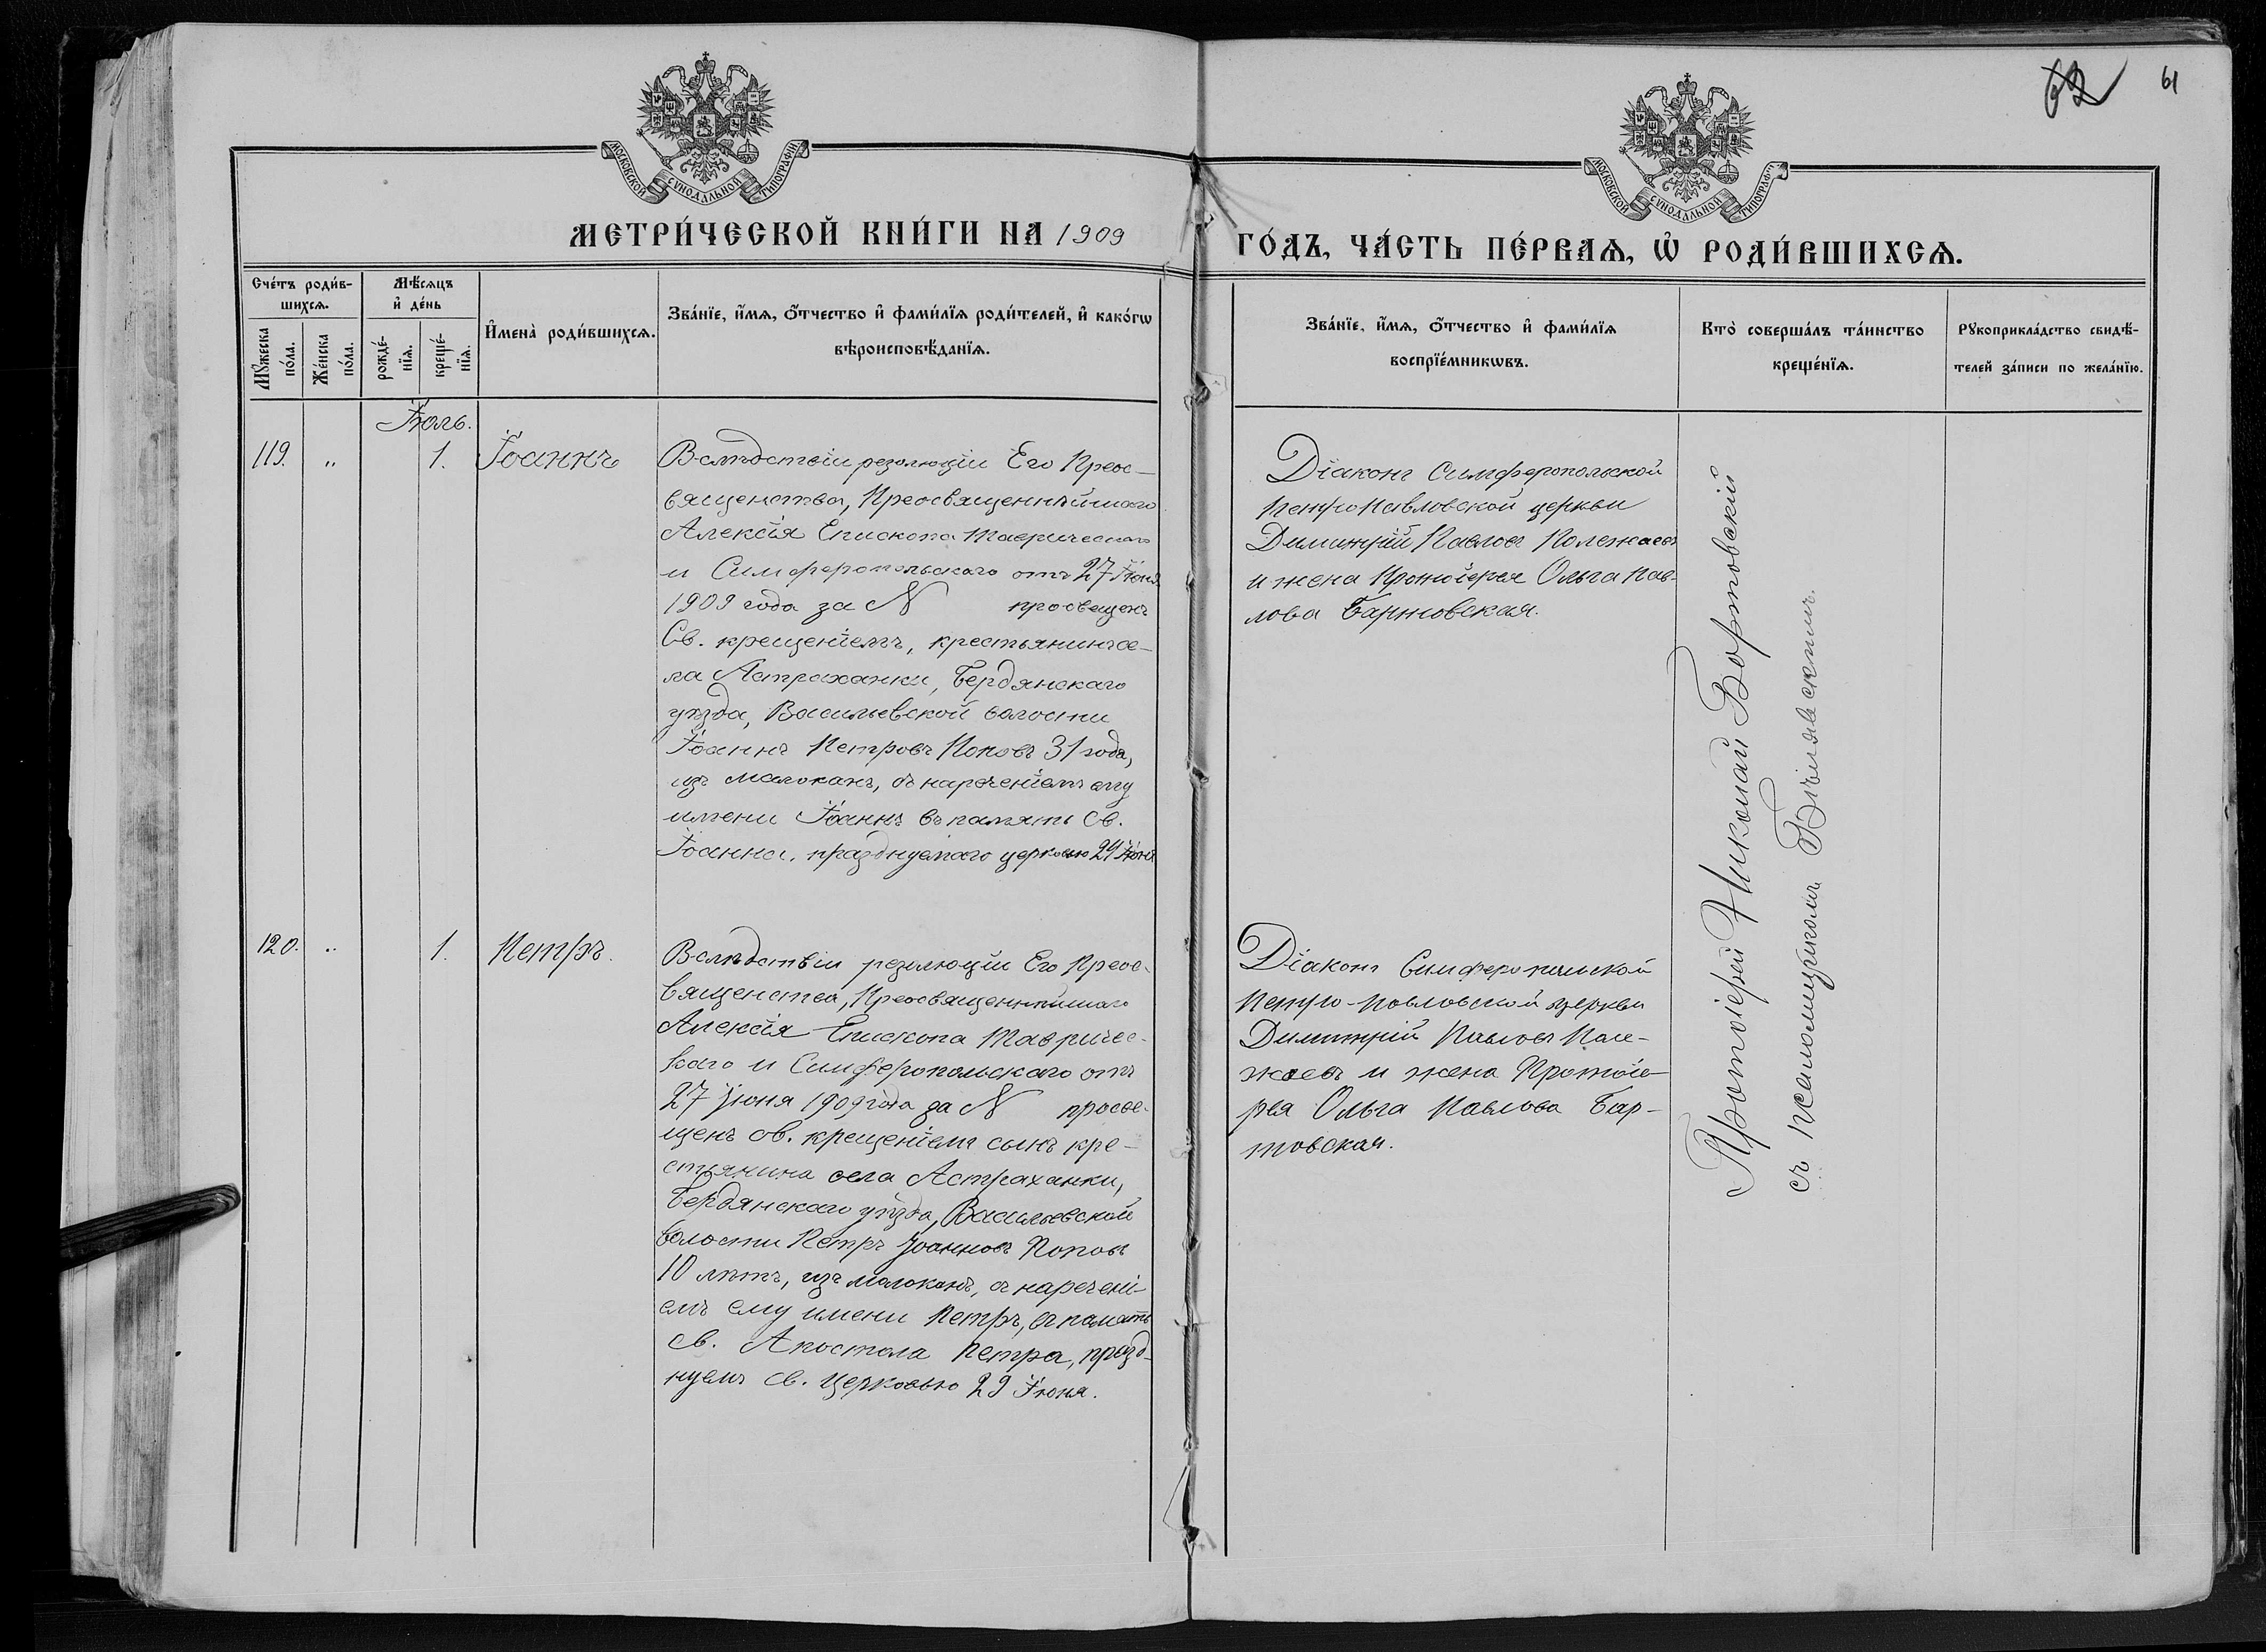 62 61
МОСКОВСКОЙ СѴНОДАЛЬНОЙ ТИПОГРАФИИ
МОСКОВСКОЙ СѴНОДАЛЬНОЙ ТИПОГРАФИИ
МЕТРИ́ЧЕСКОЙ КНИ́ГИ НА 1909
ГО́ДЪ, ЧА́СТЬ ПЕ́РВАѦ, Ѡ҆ РОДИ́ВШИХСѦ.
Сче́тъ роди́в-
шихсѧ.
Мꙋ́жеска по́ла.
Же́нска по́ла.
Мѣ́сѧцъ
и҆ де́нь
рожде́-
нїѧ.
креще́-
нїѧ.
И҆мена̀ роди́вшихсѧ.
Зва́нїе, и҆́мѧ, ѻ҆́тчество и҆ фами́лїѧ роди́телей, и҆ како́гѡ
вѣроисповѣ́данїѧ.
Зва́нїе, и҆́мѧ, ѻ҆́тчество и҆ фами́лїѧ
воспрїе́мникѡвъ.
Кто̀ соверша́лъ та́инство
креще́нїѧ.
Рꙋкоприкла́дство свидѣ́-
телей за́писи по жела́нїю.
Іюль.
119. „ 1. Іоаннъ
Вслѣдствіи резолюціи Его Преос-
вященства, Преосвященнѣйшаго
Алексія Епископа Таврическаго
и Симферопольскаго отъ 27 Іюня
1909 года за N просвещенъ
Св. крещеніемъ, крестьянинъ се-
ла Астраханки, Бердянскаго
уѣзда, Васильевской волости
Іоаннъ Петровъ Поповъ 31 года,
изъ молоканъ, съ нареченіемъ ему
имени Іоаннъ въ память Св.
Іоанна, празднуемаго церковью 24 Іюня
Діаконъ Симферопольской
Петропавловской церкви
Димитрій Павловъ Полежаевъ
и жена Протоіерея Ольга Пав-
лова Бартовская.
120. „ 1. Петръ.
Вслѣдствіи резолюціи Его Преос-
вященства, Преосвященнѣйшаго
Алексія Епископа Тавричес-
каго и Симферопольскаго отъ
27 Іюня 1909 года за N просве-
щенъ св. крещеніемъ сынъ кре-
стьянина села Астраханки,
Бердянскаго уѣзда, Васильевской
волости Петръ Іоанновъ Поповъ
10 лѣтъ, изъ молоканъ, съ наречені-
емъ ему имени Петръ, въ память
Св. Апостола Петра, празд-
нуемъ св. церковью 29 Іюня.
Діаконъ Симферопольской
Петро-Павловской церкви
Димитрій Павловъ Поле-
жаевъ и жена Протоіе-
рея Ольга Павлова Бар-
товская.
Протоіерей Николай Бортовскій
съ псаломщикомъ